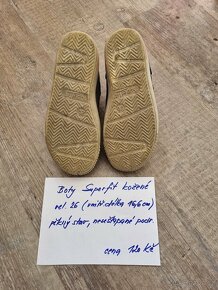 Boty Superfit kožené
vel. 26 (vnitř. délka 16,6 cm)
pěkný stav, neušlapané podr.
cena 120 Kč